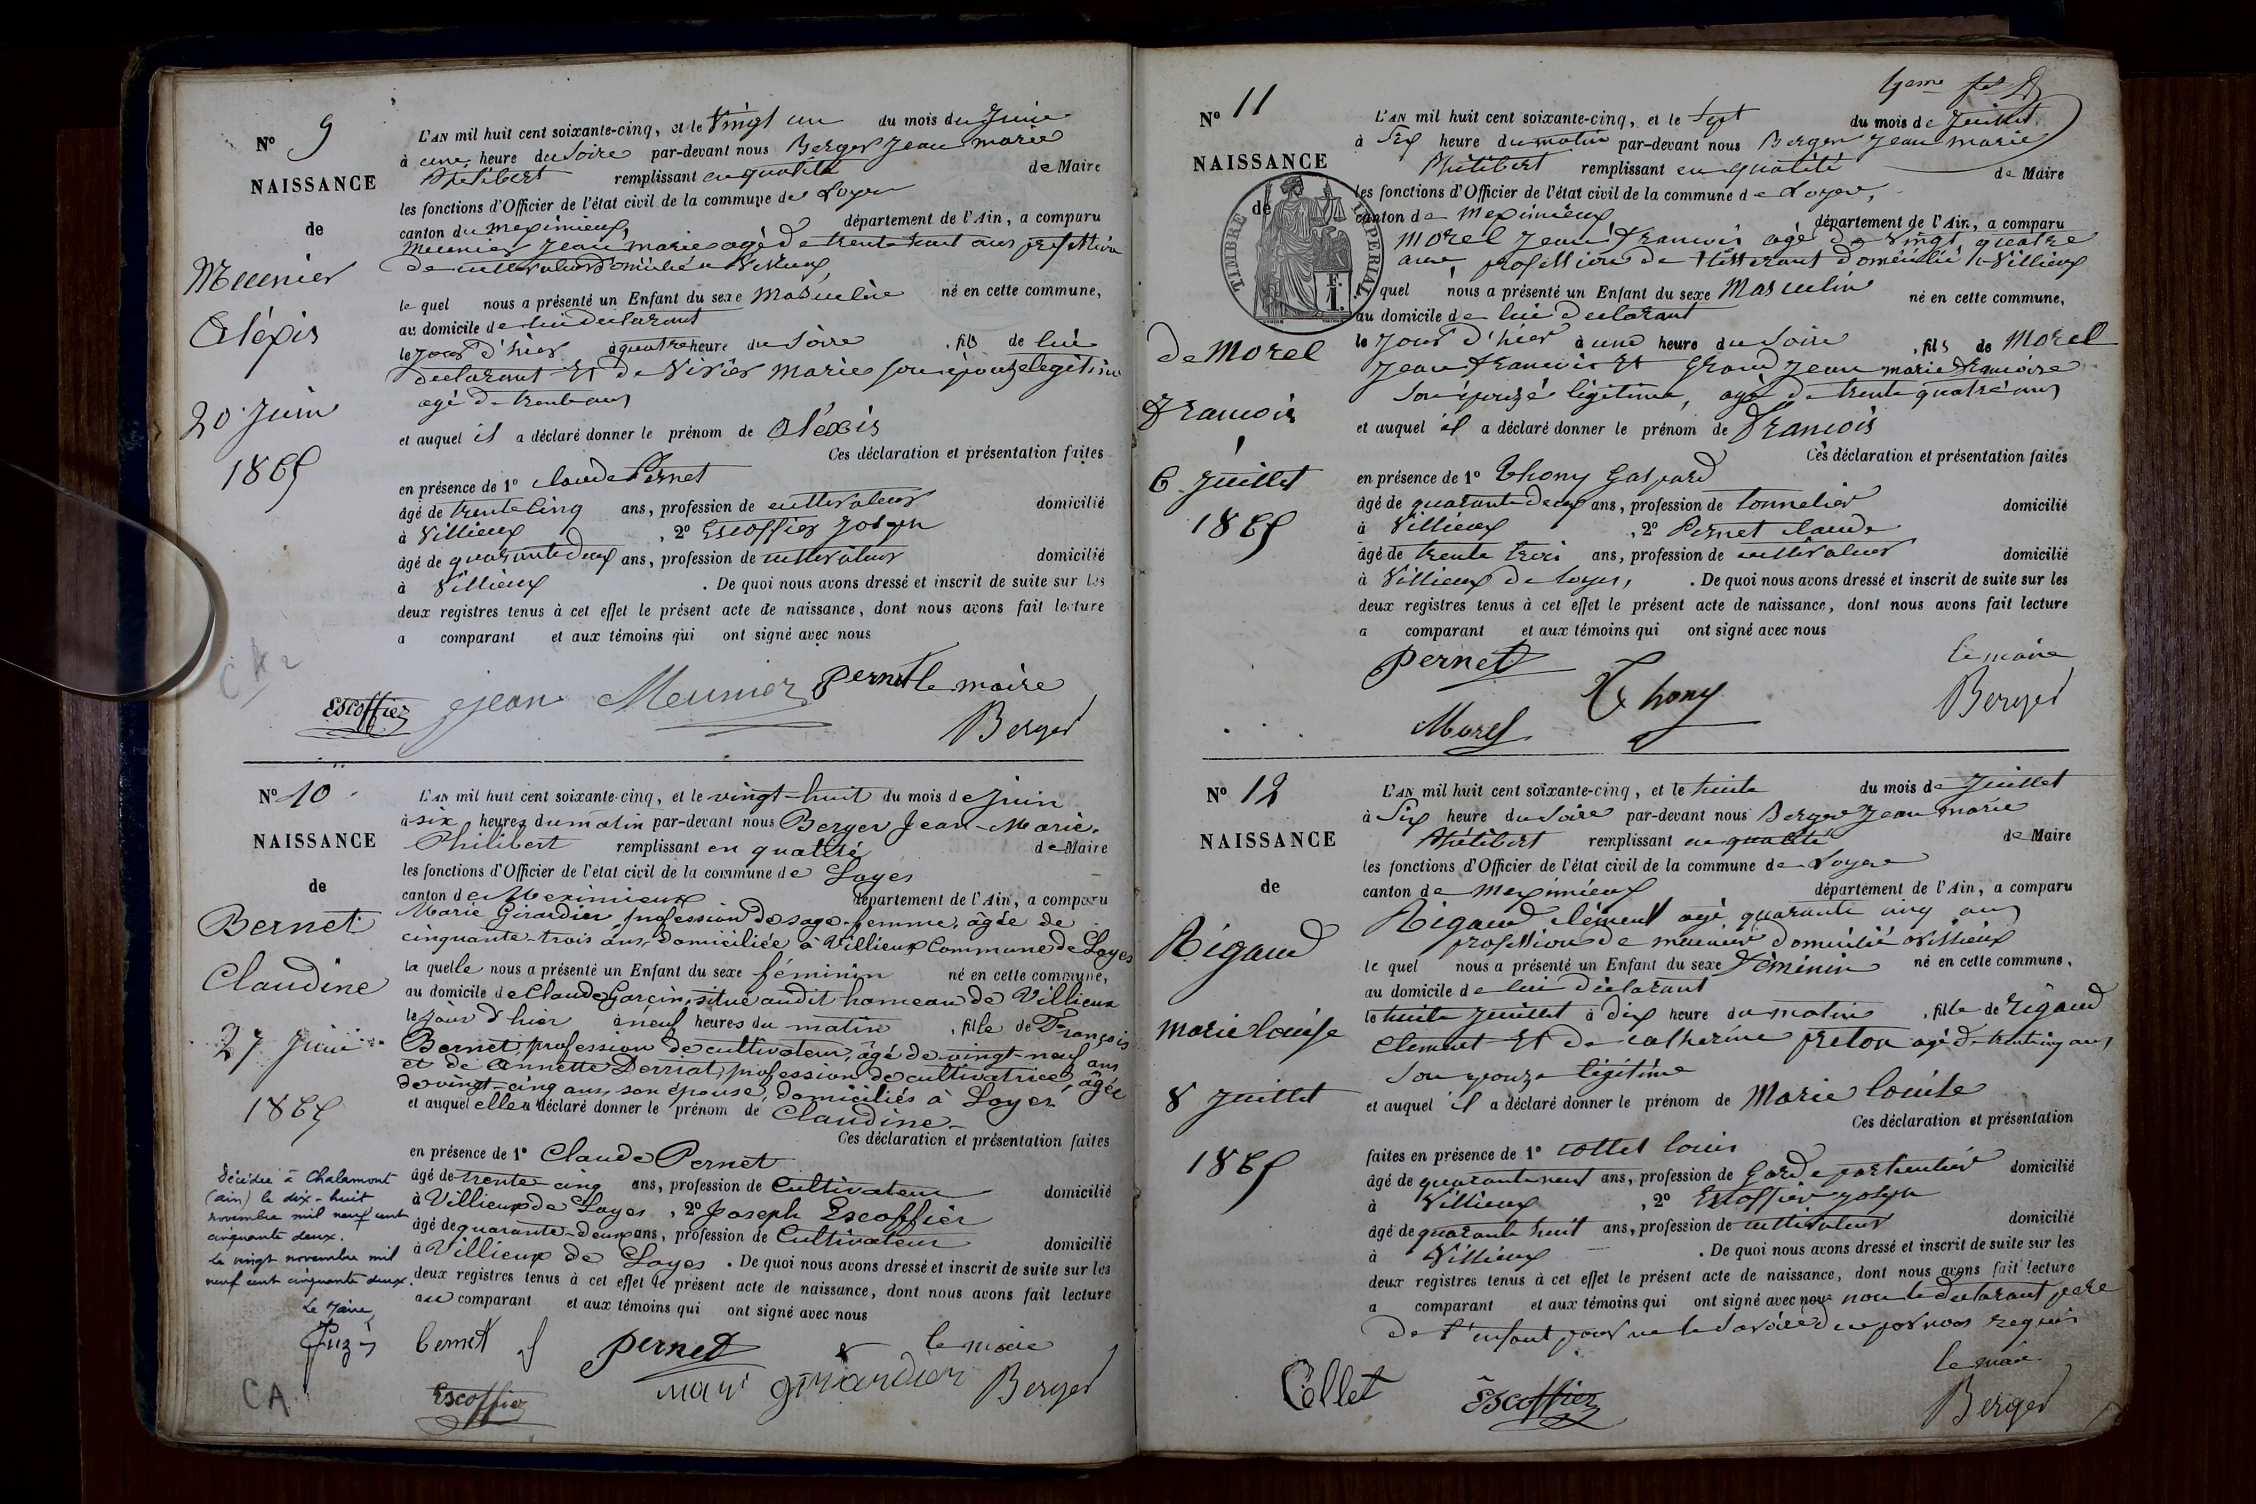 N° 9
NAISSANCE
de
Meunier
Aléxis
20 Juin
1865
L'AN mil huit cent soixante-cinq, et le Vingt un du mois de Juin
à une heure du Soire par-devant nous Berger Jean marie
Philibert remplissant en qualité de Maire
les fonctions d'Officier de l'état civil de la commune de Loyes
canton du meximieux, département de l'Ain, a comparu
Meunier Jean marie agé de trente huit ans profession
de cultivateur domicilié a Villieux
le quel nous a présenté un Enfant du sexe Masculin né en cette commune,
au domicile de lui declarant
le jour d'hier à quatre heure du Soire, fils de lui
declarant Et de Vivier Marie son épouze legitime
agé de trente ans
et auquel il a déclaré donner le prénom de Aléxis
Ces déclaration et présentation faites
en présence de 1° claude Pernet
âgé de trente cinq ans, profession de cultivateur domicilié
à Villieux, 2° Escoffier Joseph
âgé de quarante deux ans, profession de cultivateur domicilié
à Villieux. De quoi nous avons dressé et inscrit de suite sur les
deux registres tenus à cet effet le présent acte de naissance, dont nous avons fait lecture
a comparant et aux témoins qui ont signé avec nous
Escoffier jean Meunier Pernet le maire
Berger
N° 10
NAISSANCE
de
Bernet
Claudine
27 Juin
1865
Décédée à Chalamont
(ain) le dix-huit
novembre mil neuf cent
cinquante deux.
Le vingt novembre mil
neuf cent cinquante deux.
Le Maire
CA
L'AN mil huit cent soixante-cinq, et le vingt-huit du mois de Juin
à six heures du matin par-devant nous Berger Jean-Marie.
Philibert remplissant en qualité de Maire
les fonctions d'Officier de l'état civil de la commune de Loyes
canton de Meximieux département de l'Ain, a comparu
Marie Girardier, profession de sage-femme, âgée de
cinquante-trois ans, domiciliée à Villieux Commune de Loyes
la quelle nous a présenté un Enfant du sexe féminin né en cette commune,
au domicile de Claude Garcin, situé audit hameau de Villieux
le jour d'hier à neuf heures du matin, fille de François
Bernet, profession de cultivateur, âgé de vingt-neuf ans
et de Annette Derriat, profession de cultivatrice, âgée
de vingt-cinq ans, son épouse, domiciliés à Loyes
et auquel elle a déclaré donner le prénom de Claudine-
Ces déclaration et présentation faites
en présence de 1° Claude Pernet
âgé de trente-cinq ans, profession de Cultivateur domicilié
à Villieux de Loyes, 2° Joseph Escoffier
âgé de quarante-deux ans, profession de Cultivateur domicilié
à Villieux de Loyes. De quoi nous avons dressé et inscrit de suite sur les
deux registres tenus à cet effet le présent acte de naissance, dont nous avons fait lecture
au comparant et aux témoins qui ont signé avec nous
bernet f Pernet le maire
Escoffier mari girardier Berger
N° 11
NAISSANCE
de
TIMBRE IMPERIAL
1 F.
de Morel
Francois
6 Juillet
1865
L'AN mil huit cent soixante-cinq, et le Sept du mois de Juillet
à Six heure du matin par-devant nous Berger Jean marie
Philibert remplissant en qualité de Maire
les fonctions d'Officier de l'état civil de la commune de Loyes,
canton de meximieux, département de l'Ain, a comparu
Morel Jean francois agé de vingt quatre
ans, profession de tisserant domicilié a Villieux
quel nous a présenté un Enfant du sexe Masculin né en cette commune,
au domicile de lui declarant
le Jour d'hier à une heure du Soire, fils de Morel
Jean francois Et Grand Jean marie francoise
Son épouzé légitime, agé de trente quatre ans
et auquel il a déclaré donner le prénom de Francois
Ces déclaration et présentation faites
en présence de 1° Thony Gaspard
âgé de quarante deux ans, profession de tonnelier domicilié
à Villieux, 2° Pernet claude
âgé de trente trois ans, profession de cultivateur domicilié
à Villieux de Loyes,. De quoi nous avons dressé et inscrit de suite sur les
deux registres tenus à cet effet le présent acte de naissance, dont nous avons fait lecture
a comparant et aux témoins qui ont signé avec nous
Pernet le maire
Thony Berger
Morel
N° 12
NAISSANCE
de
Rigaud
Marie louise
8 Juillet
1865
L'AN mil huit cent soixante-cinq, et le huite du mois de Juillet
à Six heure du Soire par-devant nous Berger Jean marie
Philibert remplissant en qualité de Maire
les fonctions d'Officier de l'état civil de la commune de Loyes
canton de meximieux département de l'Ain, a comparu
Rigaud clément agé quarante cinq ans
profession de meunier domicilié a Villieux
le quel nous a présenté un Enfant du sexe féminin né en cette commune,
au domicile de lui déclarant
le huite Juillet à dix heure du matin, fille de Rigaud
Clement Et de catherine preton agé de trente cinq ans
Son epouze légitime
et auquel il a déclaré donner le prénom de Marie louise
Ces déclaration et présentation
faites en présence de 1° Collet louis
âgé de quarante neuf ans, profession de Garde particulier domicilié
à Villieux, 2° Escoffier Joseph
âgé de quarante huit ans, profession de cultivateur domicilié
à Villieux. De quoi nous avons dressé et inscrit de suite sur les
deux registres tenus à cet effet le présent acte de naissance, dont nous avons fait lecture
a comparant et aux témoins qui ont signé avec nous non le declarant pere
de l'enfant pour ne le savoire de ce par nous requis
le maire
Collet Escoffier Berger